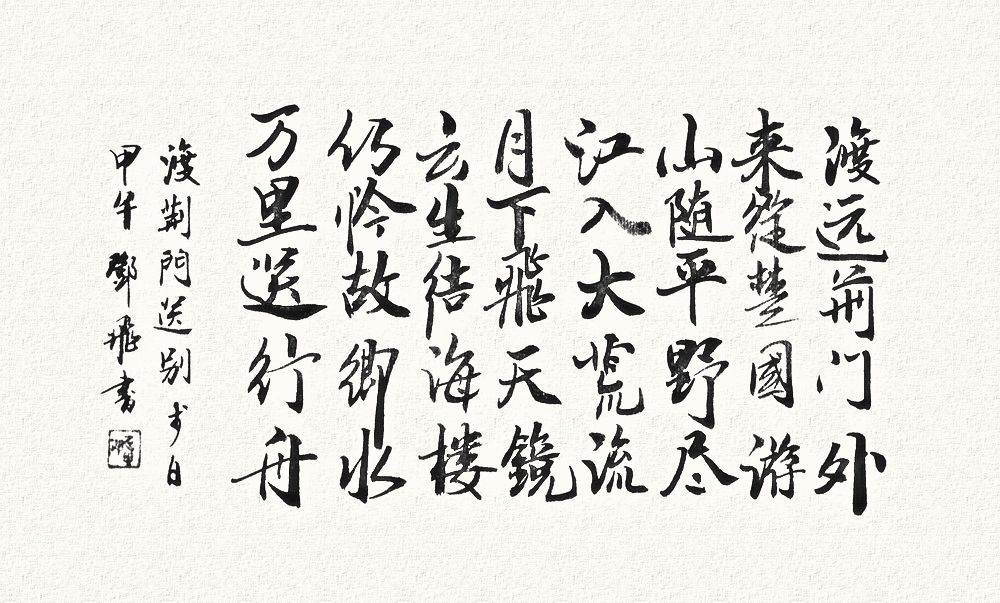 渡远荆门外
来從楚國游
山随平野尽
江入大荒流
月下飛天鏡
云生结海楼
仍怜故鄉水
万里送行舟
渡荆門送别 李白
甲午鄧飛書